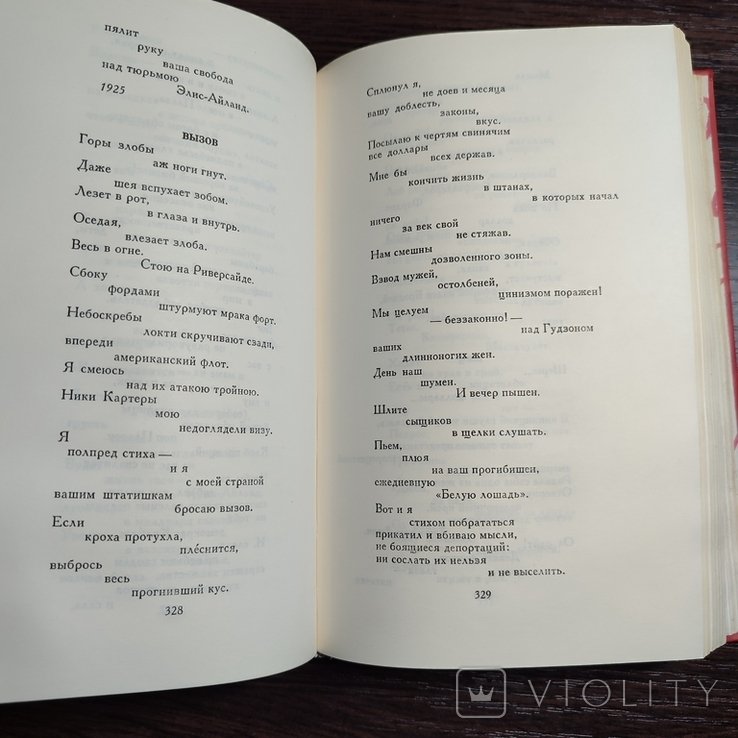 пялит
руку
ваша свобода
над тюрьмою
Элис-Айланд.
1925
ВЫЗОВ
Горы злобы
аж ноги гнут.
Даже
шея вспухает зобом.
Лезет в рот,
в глаза и внутрь.
Оседая,
влезает злоба.
Весь в огне.
Стою на Риверсайде.
Сбоку
фордами
штурмуют мрака форт.
Небоскребы
локти скручивают сзади,
впереди
американский флот.
Я смеюсь
над их атакою тройною.
Ники Картеры
мою
недоглядели визу.
Я
полпред стиха —
и я
с моей страной
вашим штатишкам
бросаю вызов.
Если
кроха протухла,
плéснится,
выбрось
весь
прогнивший кус.
328
Сплюнул я,
не доев и месяца
вашу доблесть,
законы,
вкус.
Посылаю к чертям свинячим
все доллары
всех держав.
Мне бы
кончить жизнь
в штанах,
в которых начал
ничего
за век свой
не стяжав.
Нам смешны
дозволенного зоны.
Взвод мужей,
остолбеней,
цинизмом поражен!
Мы целуем
— беззаконно! —
над Гудзоном
ваших
длинноногих жен.
День наш
шумен.
И вечер пышен.
Шлите
сыщиков
в щелки слушать.
Пьем,
плюя
на ваш прогибишен,
ежедневную
«Белую лошадь».
Вот и я
стихом побрататься
прикатил и вбиваю мысли,
не боящиеся депортаций:
ни сослать их нельзя
и не выселить.
329
VIOLITY